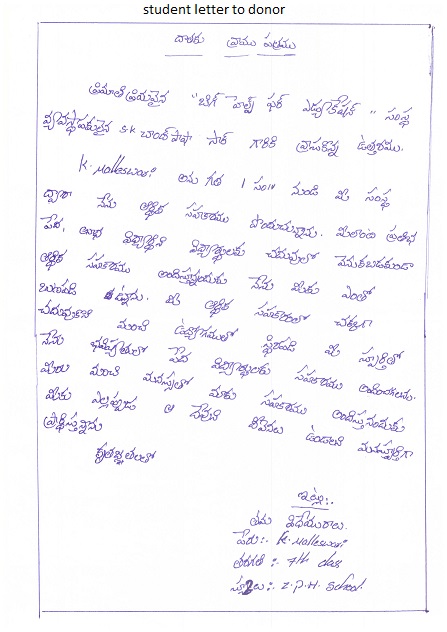 student letter to donor
దాతకు వ్రాయు పత్రము
ప్రియాతి ప్రియమైన "బిగ్ హెల్ప్ ఫర్ ఎడ్యుకేషన్" సంస్థ
వ్యవస్థాపకులైన S.K చాంద్ పాషా సార్ గారికి వ్రాయునది ఉత్తరము.
K. Malleswari అను గత 1 సం|| నుండి మీ సంస్థ
ద్వారా నేను ఆర్థిక సహకారము పొందుచున్నాను. మీలాంటి
పేద, విద్యార్థిని విద్యార్థులకు చదువులో వెనుకబడకుండా
ఆర్థిక సహకారము అందిస్తున్నందుకు నేను మీకు ఎంతో
ఋణపడి ఉన్నాను. మీ ఆర్థిక సహకారంతో చక్కగా
చదువుకొని మంచి ఉద్యోగములో స్థిరపడి మీ స్ఫూర్తితో
నేను భవిష్యత్తులో పేద విద్యార్థులకు సహకారము అందించగలను.
మీరు మంచి మనస్సుతో మాకు సహకారము అందిస్తున్నందుకు
మీకు ఎల్లప్పుడు ఆ దేవుని దీవెనలు ఉండాలని మనస్ఫూర్తిగా
ప్రార్థిస్తున్నాను
కృతజ్ఞతలతో
ఇట్లు:.
తమ విధేయురాలు.
పేరు:- K. Malleswari
తరగతి:- 7th class
స్కూలు:- Z.P.H. School.